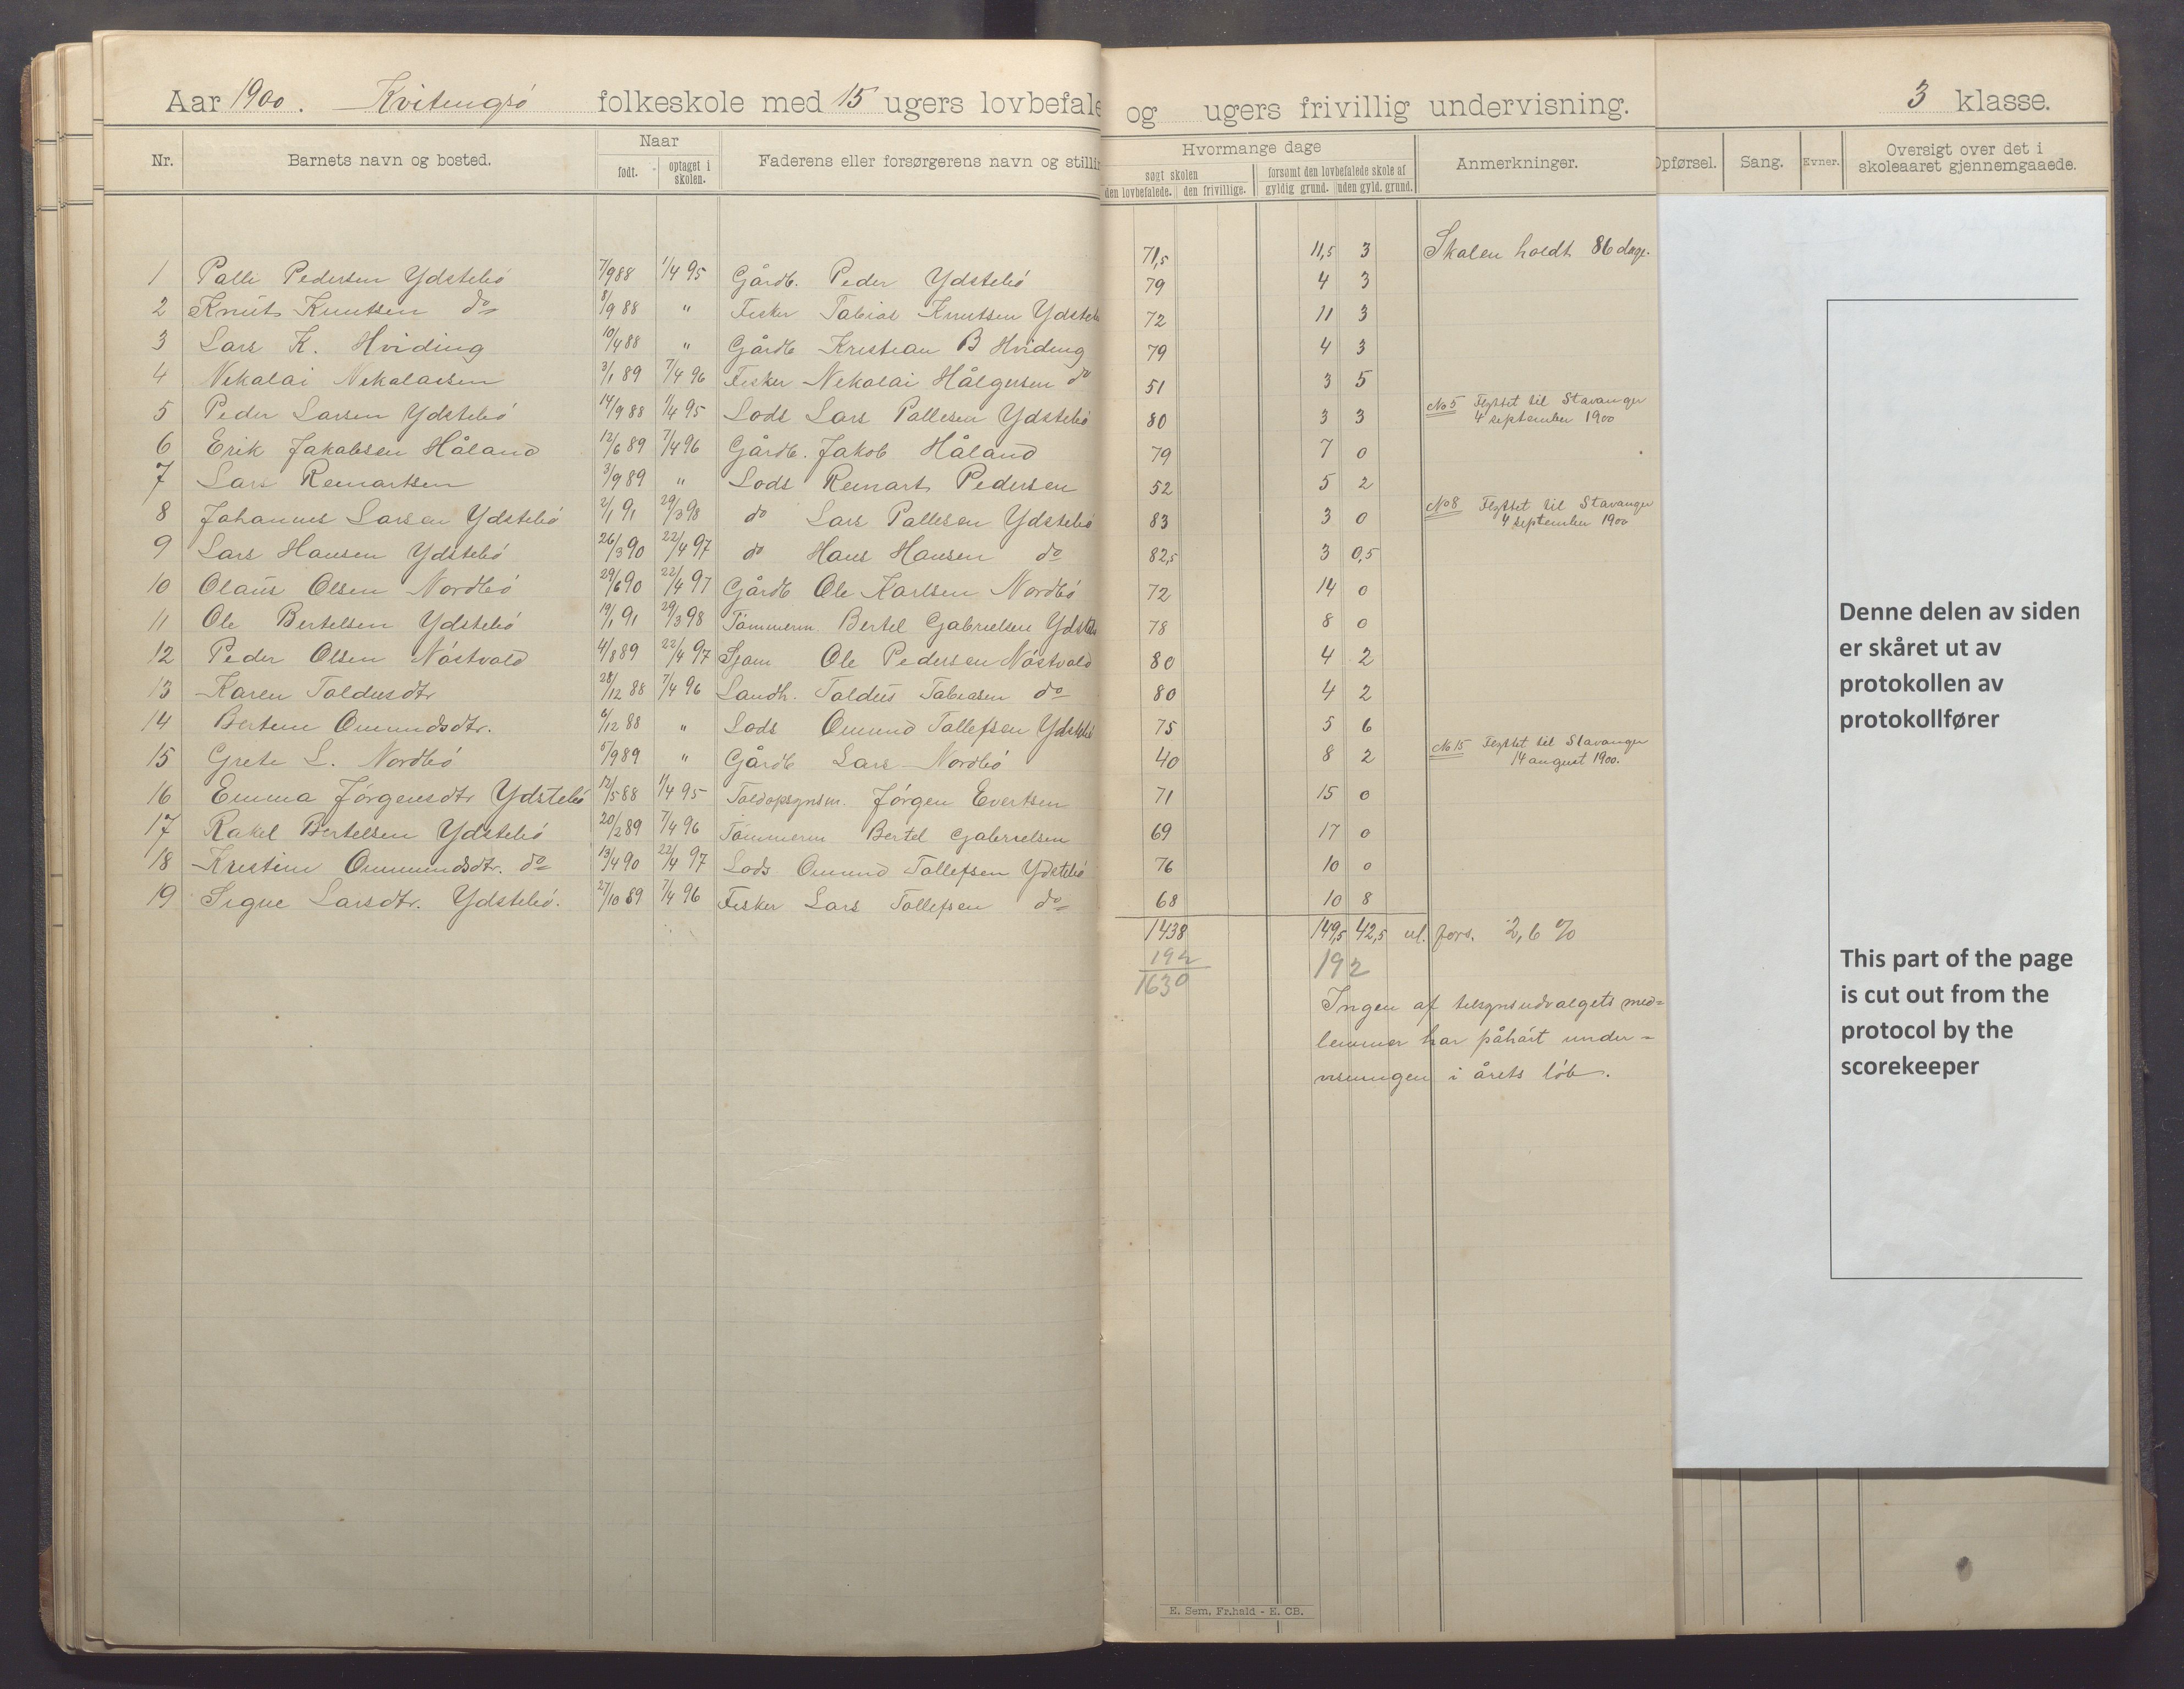 Aar 1900. Kvitingsö folkeskole med 15 ugers lovbefale og ugers frivillig undervisning. 3 klasse.
Nr. Barnets navn og bosted. Naar født. optaget i skolen. Faderens eller forsørgerens navn og stillin Hvormange dage søgt skolen den lovbefalede. den frivillige. forsømt den lovbefalede skole af gyldig grund. uden gyld. grund. Anmerkninger. Opførsel. Sang. Evner. Oversigt over det i skoleaaret gjennemgaaede.
1 Palle Pedersen Ydstebö 7/9 88 1/4 95 Gårdb. Peder Ydstebö 71,5 11,5 3 Skolen holdt 86 dage.
2 Knut Knutsen do 8/9 88 " Fisker Tobias Knutsen Ydsteb 79 4 3
3 Lars K. Hviding 10/4 88 " Gårdb Kristian B Hviding 72 11 3
4 Nikolai Nikolaisen 3/1 89 7/4 96 Fisker Nikolai Hålgersen do 79 4 3
5 Peder Larsen Ydstebö 14/9 88 1/4 95 Lods Lars Pallesen Ydstebö 51 3 5 No 5 Flyttet til Stavanger 4 september 1900
6 Erik Jakobsen Håland 12/6 89 7/4 96 Gårdb. Jakob Håland 80 3 3
7 Lars Reinartsen 3/9 89 " Lods Reinart Pedersen 79 7 0
8 Johannes Larsen Ydstebö 2/1 91 29/3 98 do Lars Pallesen Ydstebö 52 5 2 No 8 Flyttet til Stavanger 4 september 1900
9 Lars Hansen Ydstebö 26/3 90 22/4 97 do Hans Hansen do 83 3 0
10 Olaus Olsen Nordbö 29/6 90 22/4 97 Gårdb Ole Karlsen Nordbö 82,5 3 0,5
11 Ole Bertelsen Ydstebö 19/1 91 29/3 98 Tömmerm. Bertel Gabrielsen Ydsteb 72 14 0
12 Peder Olsen Nöstvold 4/8 89 22/4 97 Sjöm Ole Pedersen Nöstvold 78 8 0
13 Karen Toldusdtr 28/12 88 7/4 96 Landh. Toldus Tobiasen do 80 4 2
14 Bertine Omundsdtr. 6/12 88 " Lods Omund Tollefsen Ydstebö 80 4 2
15 Grete L. Nordbö 5/9 89 " Gårdb Lars Nordbö 75 5 6 No 15 Flyttet til Stavanger 14 august 1900.
16 Emma Jörgensdtr Ydstebö 12/5 88 1/4 95 Toldopsynsm. Jörgen Evertsen 40 8 2
17 Rakel Bertelsen Ydstebö 20/2 89 7/4 96 Tömmerm Bertel Gabrielsen 71 15 0
18 Kristine Ommundsdtr. do 13/4 90 22/4 97 Lods Omund Tollefsen Ydstebö 69 17 0
19 Signe Larsdtr. Ydstebö. 27/10 89 7/4 96 Fisker Lars Tollefsen do 76 10 0
68 10 8
1438 149,5 42,5 ul. fors. 2,6 %
192 192
1630
Ingen af tilsynsudvalgets med=
lemmer har påhört under=
visningen i årets löb.
E. Sem, Fr.hald - E. CB.
Denne delen av siden
er skåret ut av
protokollen av
protokollfører
This part of the page
is cut out from the
protocol by the
scorekeeper